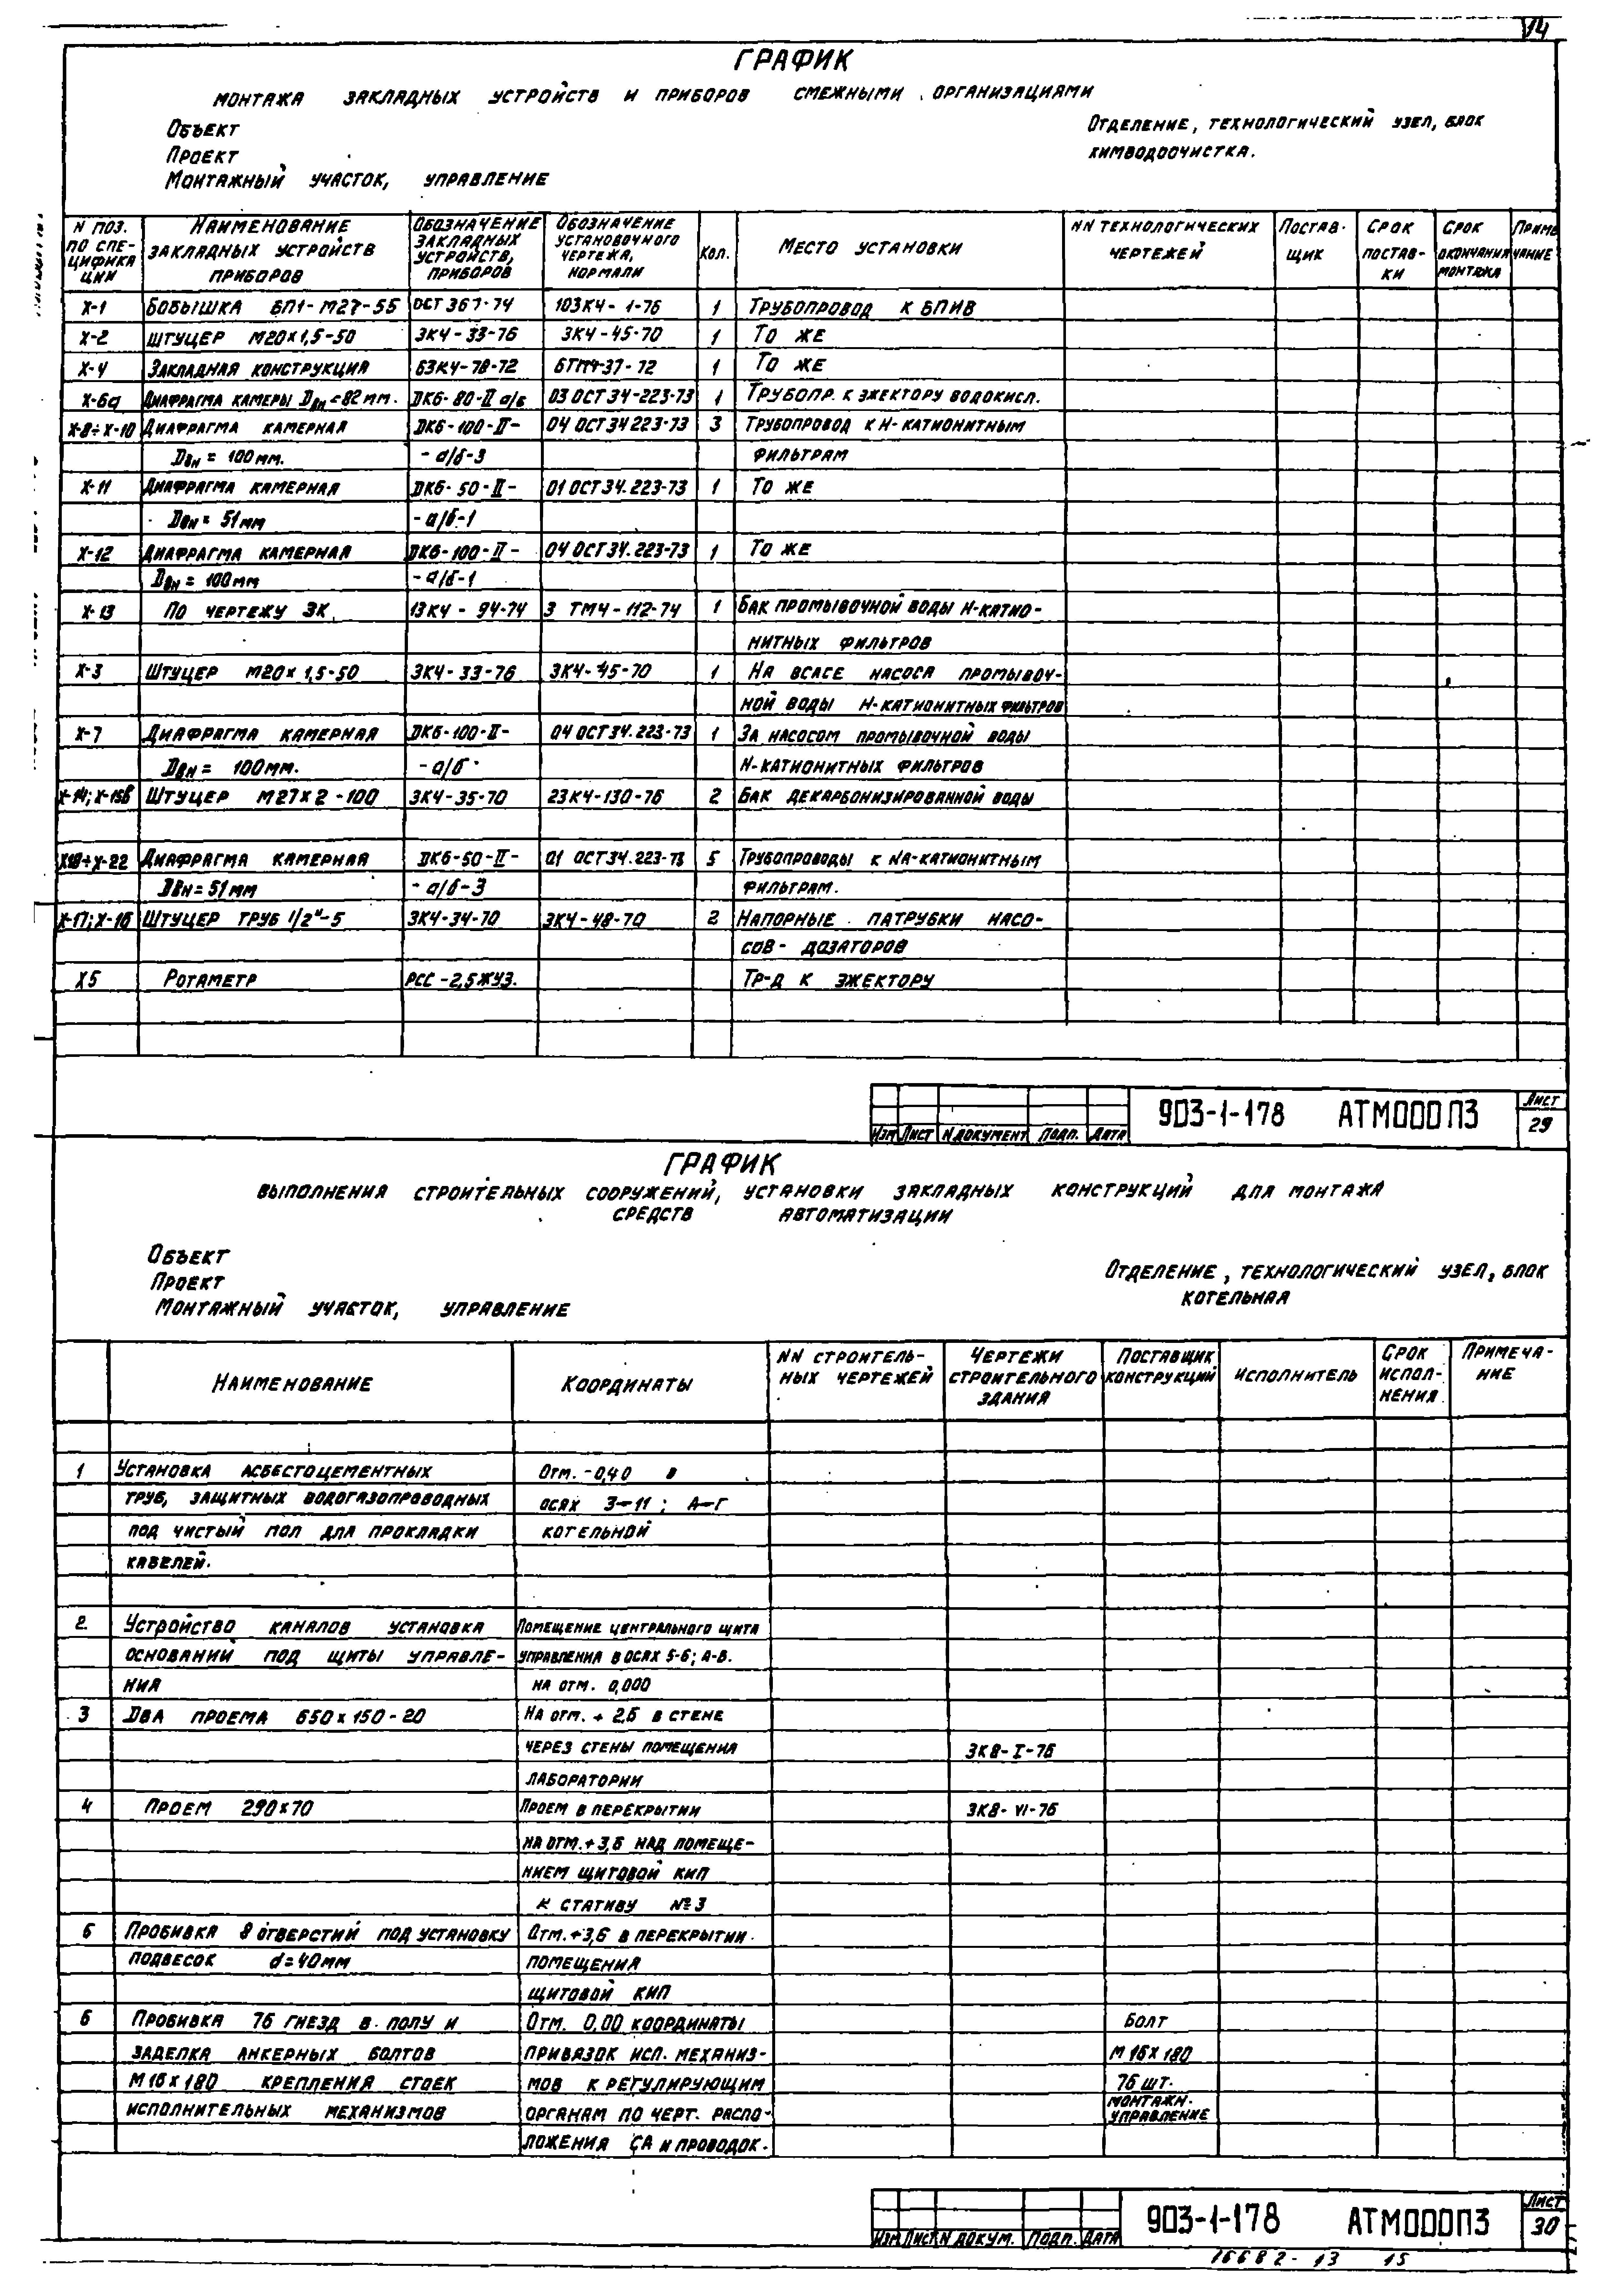 14
ГРАФИК
МОНТАЖА ЗАКЛАДНЫХ УСТРОЙСТВ И ПРИБОРОВ СМЕЖНЫМИ ОРГАНИЗАЦИЯМИ
ОБЪЕКТ
ПРОЕКТ
МОНТАЖНЫЙ УЧАСТОК, УПРАВЛЕНИЕ
ОТДЕЛЕНИЕ, ТЕХНОЛОГИЧЕСКИЙ УЗЕЛ, БЛОК
ХИМВОДООЧИСТКА.
N ПОЗ. ПО СПЕ-ЦИФИКА ЦИИ | НАИМЕНОВАНИЕ ЗАКЛАДНЫХ УСТРОЙСТВ ПРИБОРОВ | ОБОЗНАЧЕНИЕ ЗАКЛАДНЫХ УСТРОЙСТВ, ПРИБОРОВ | ОБОЗНАЧЕНИЕ УСТАНОВОЧНОГО ЧЕРТЕЖА, НОРМАЛИ | КОЛ. | МЕСТО УСТАНОВКИ | NN ТЕХНОЛОГИЧЕСКИХ ЧЕРТЕЖЕЙ | ПОСТАВ-ЩИК | СРОК ПОСТАВ-КИ | СРОК ОКОНЧАНИЯ МОНТАЖА | ПРИМЕ ЧАНИЕ
Х-1 БОБЫШКА БП1-М27-55 ОСТ 367-74 103К4-1-76 1 ТРУБОПРОВОД К БПИВ
Х-2 ШТУЦЕР М20х1,5-50 3К4-33-76 3К4-45-70 1 ТО ЖЕ
Х-4 ЗАКЛАДНАЯ КОНСТРУКЦИЯ 63К4-78-72 6ТМ4-37-72 1 ТО ЖЕ
Х-6а ДИАФРАГМА КАМЕРЫ Dвн=82мм. ДК6-80-II а/б 03 ОСТ 34-223-73 1 ТРУБОПР. К ЭЖЕКТОРУ ВОДОКИСЛ.
Х-8÷Х-10 ДИАФРАГМА КАМЕРНАЯ ДК6-100-II- 04 ОСТ 34 223-73 3 ТРУБОПРОВОД К Н-КАТИОНИТНЫМ
Dвн = 100мм. -а/б-3 ФИЛЬТРАМ
Х-11 ДИАФРАГМА КАМЕРНАЯ ДК6-50-II- 01 ОСТ 34.223-73 1 ТО ЖЕ
Dвн = 51мм -а/б-1
Х-12 ДИАФРАГМА КАМЕРНАЯ ДК6-100-II- 04 ОСТ 34.223-73 1 ТО ЖЕ
Dвн = 100мм -а/б-1
Х-13 ПО ЧЕРТЕЖУ ЗК 13К4-94-74 3 ТМ4-112-74 1 БАК ПРОМЫВОЧНОЙ ВОДЫ Н-КАТИО-
НИТНЫХ ФИЛЬТРОВ
Х-3 ШТУЦЕР М20х1,5-50 3К4-33-76 3К4-45-70 1 НА ВСАСЕ НАСОСА ПРОМЫВОЧ-
НОЙ ВОДЫ Н-КАТИОНИТНЫХ ФИЛЬТРОВ
Х-7 ДИАФРАГМА КАМЕРНАЯ ДК6-100-II- 04 ОСТ 34.223-73 1 ЗА НАСОСОМ ПРОМЫВОЧНОЙ ВОДЫ
Dвн = 100мм. -а/б Н-КАТИОНИТНЫХ ФИЛЬТРОВ
Х-14; Х-15в ШТУЦЕР М27х2-100 3К4-35-70 23К4-130-76 2 БАК ДЕКАРБОНИЗИРОВАННОЙ ВОДЫ
Х18÷Х-22 ДИАФРАГМА КАМЕРНАЯ ДК6-50-II- 01 ОСТ 34.223-73 5 ТРУБОПРОВОДЫ К NA-КАТИОНИТНЫМ
Dвн=51мм -а/б-3 ФИЛЬТРАМ.
Х-17; Х-16 ШТУЦЕР ТРУБ 1/2"-5 3К4-34-70 3К4-48-70 2 НАПОРНЫЕ ПАТРУБКИ НАСО-
СОВ-ДОЗАТОРОВ
Х5 РОТАМЕТР РСС-2,5ЖУЗ. ТР-Д К ЭЖЕКТОРУ
ИЗМ ЛИСТ N ДОКУМЕНТ ПОДП. ДАТА
903-1-178 АТМ000ПЗ
ЛИСТ
29
ГРАФИК
ВЫПОЛНЕНИЯ СТРОИТЕЛЬНЫХ СООРУЖЕНИЙ, УСТАНОВКИ ЗАКЛАДНЫХ КОНСТРУКЦИЙ ДЛЯ МОНТАЖА
СРЕДСТВ АВТОМАТИЗАЦИИ
ОБЪЕКТ
ПРОЕКТ
МОНТАЖНЫЙ УЧАСТОК, УПРАВЛЕНИЕ
ОТДЕЛЕНИЕ, ТЕХНОЛОГИЧЕСКИЙ УЗЕЛ, БЛОК
КОТЕЛЬНАЯ
НАИМЕНОВАНИЕ | КООРДИНАТЫ | NN СТРОИТЕЛЬ-НЫХ ЧЕРТЕЖЕЙ | ЧЕРТЕЖИ СТРОИТЕЛЬНОГО ЗДАНИЯ | ПОСТАВЩИК КОНСТРУКЦИЙ | ИСПОЛНИТЕЛЬ | СРОК ИСПОЛ-НЕНИЯ | ПРИМЕЧА-НИЕ
1 УСТАНОВКА АСБЕСТОЦЕМЕНТНЫХ ОТМ. -0,40 В
ТРУБ, ЗАЩИТНЫХ ВОДОГАЗОПРОВОДНЫХ ОСЯХ 3-11; А-Г
ПОД ЧИСТЫЙ ПОЛ ДЛЯ ПРОКЛАДКИ КОТЕЛЬНОЙ
КАБЕЛЕЙ.
2. УСТРОЙСТВО КАНАЛОВ УСТАНОВКА ПОМЕЩЕНИЕ ЦЕНТРАЛЬНОГО ЩИТА
ОСНОВАНИЙ ПОД ЩИТЫ УПРАВЛЕ- УПРАВЛЕНИЯ В ОСЯХ 5-6; А-Б.
НИЯ НА ОТМ. 0,000
3 ДВА ПРОЕМА 650х150-20 НА ОТМ. + 2,6 В СТЕНЕ
ЧЕРЕЗ СТЕНЫ ПОМЕЩЕНИЯ 3К8-I-76
ЛАБОРАТОРИИ
4 ПРОЕМ 290х70 ПРОЕМ В ПЕРЕКРЫТИИ 3К8-VI-76
НА ОТМ.+3,6 НАД ПОМЕЩЕ-
НИЕМ ЩИТОВОЙ КИП
К СТАТИВУ №3
5 ПРОБИВКА 8 ОТВЕРСТИЙ ПОД УСТАНОВКУ ОТМ.+3,6 В ПЕРЕКРЫТИИ
ПОДВЕСОК d=40мм ПОМЕЩЕНИЯ
ЩИТОВОЙ КИП
6 ПРОБИВКА 76 ГНЕЗД В ПОЛУ И ОТМ. 0,00 КООРДИНАТЫ БОЛТ
ЗАДЕЛКА АНКЕРНЫХ БОЛТОВ ПРИВЯЗОК ИСП. МЕХАНИЗ- М 16Х180
М16х180 КРЕПЛЕНИЯ СТОЕК МОВ К РЕГУЛИРУЮЩИМ 76 ШТ.
ИСПОЛНИТЕЛЬНЫХ МЕХАНИЗМОВ ОРГАНАМ ПО ЧЕРТ. РАСПО- МОНТАЖН. УПРАВЛЕНИЕ
ЛОЖЕНИЯ СА И ПРОВОДОК.
ИЗМ ЛИСТ N ДОКУМ. ПОДП. ДАТА
903-1-178 АТМ000ПЗ
ЛИСТ
30
16682-13 15